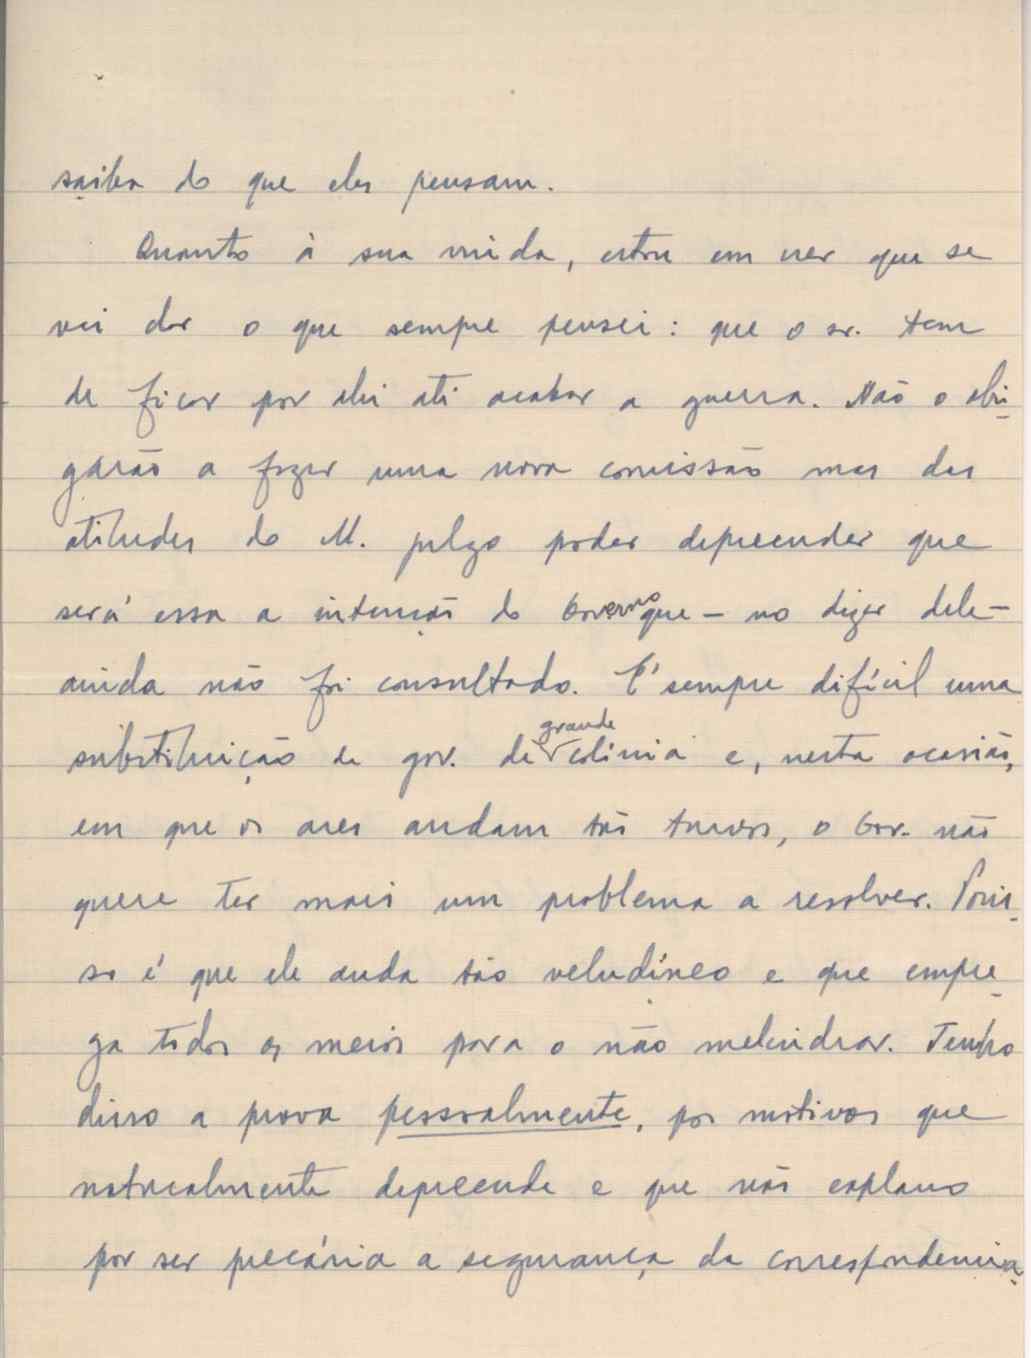 saiba do que eles pensam.
Quanto à sua vinda, estou em ver que se
vai dar o que sempre pensei: que o sr. tem
de ficar por ahi até acabar a guerra. Não o obri-
garão a fazer uma nova comissão mas das
atitudes do M. julgo poder depreender que
será essa a intenção do Governo que — no dizer dele —
ainda não foi consultado. É sempre difícil uma
substituição de gov. de grande colónia e, nesta ocasião,
em que os ares andam tão turvos, o Gov. não
quere ter mais um problema a resolver. Poris-
so é que ele anda tão veludíneo e que empre-
ga todos os meios para o não melindrar. Tenho
disso a prova pessoalmente, por motivos que
naturalmente depreende e que não explano
por ser precária a segurança da correspondencia